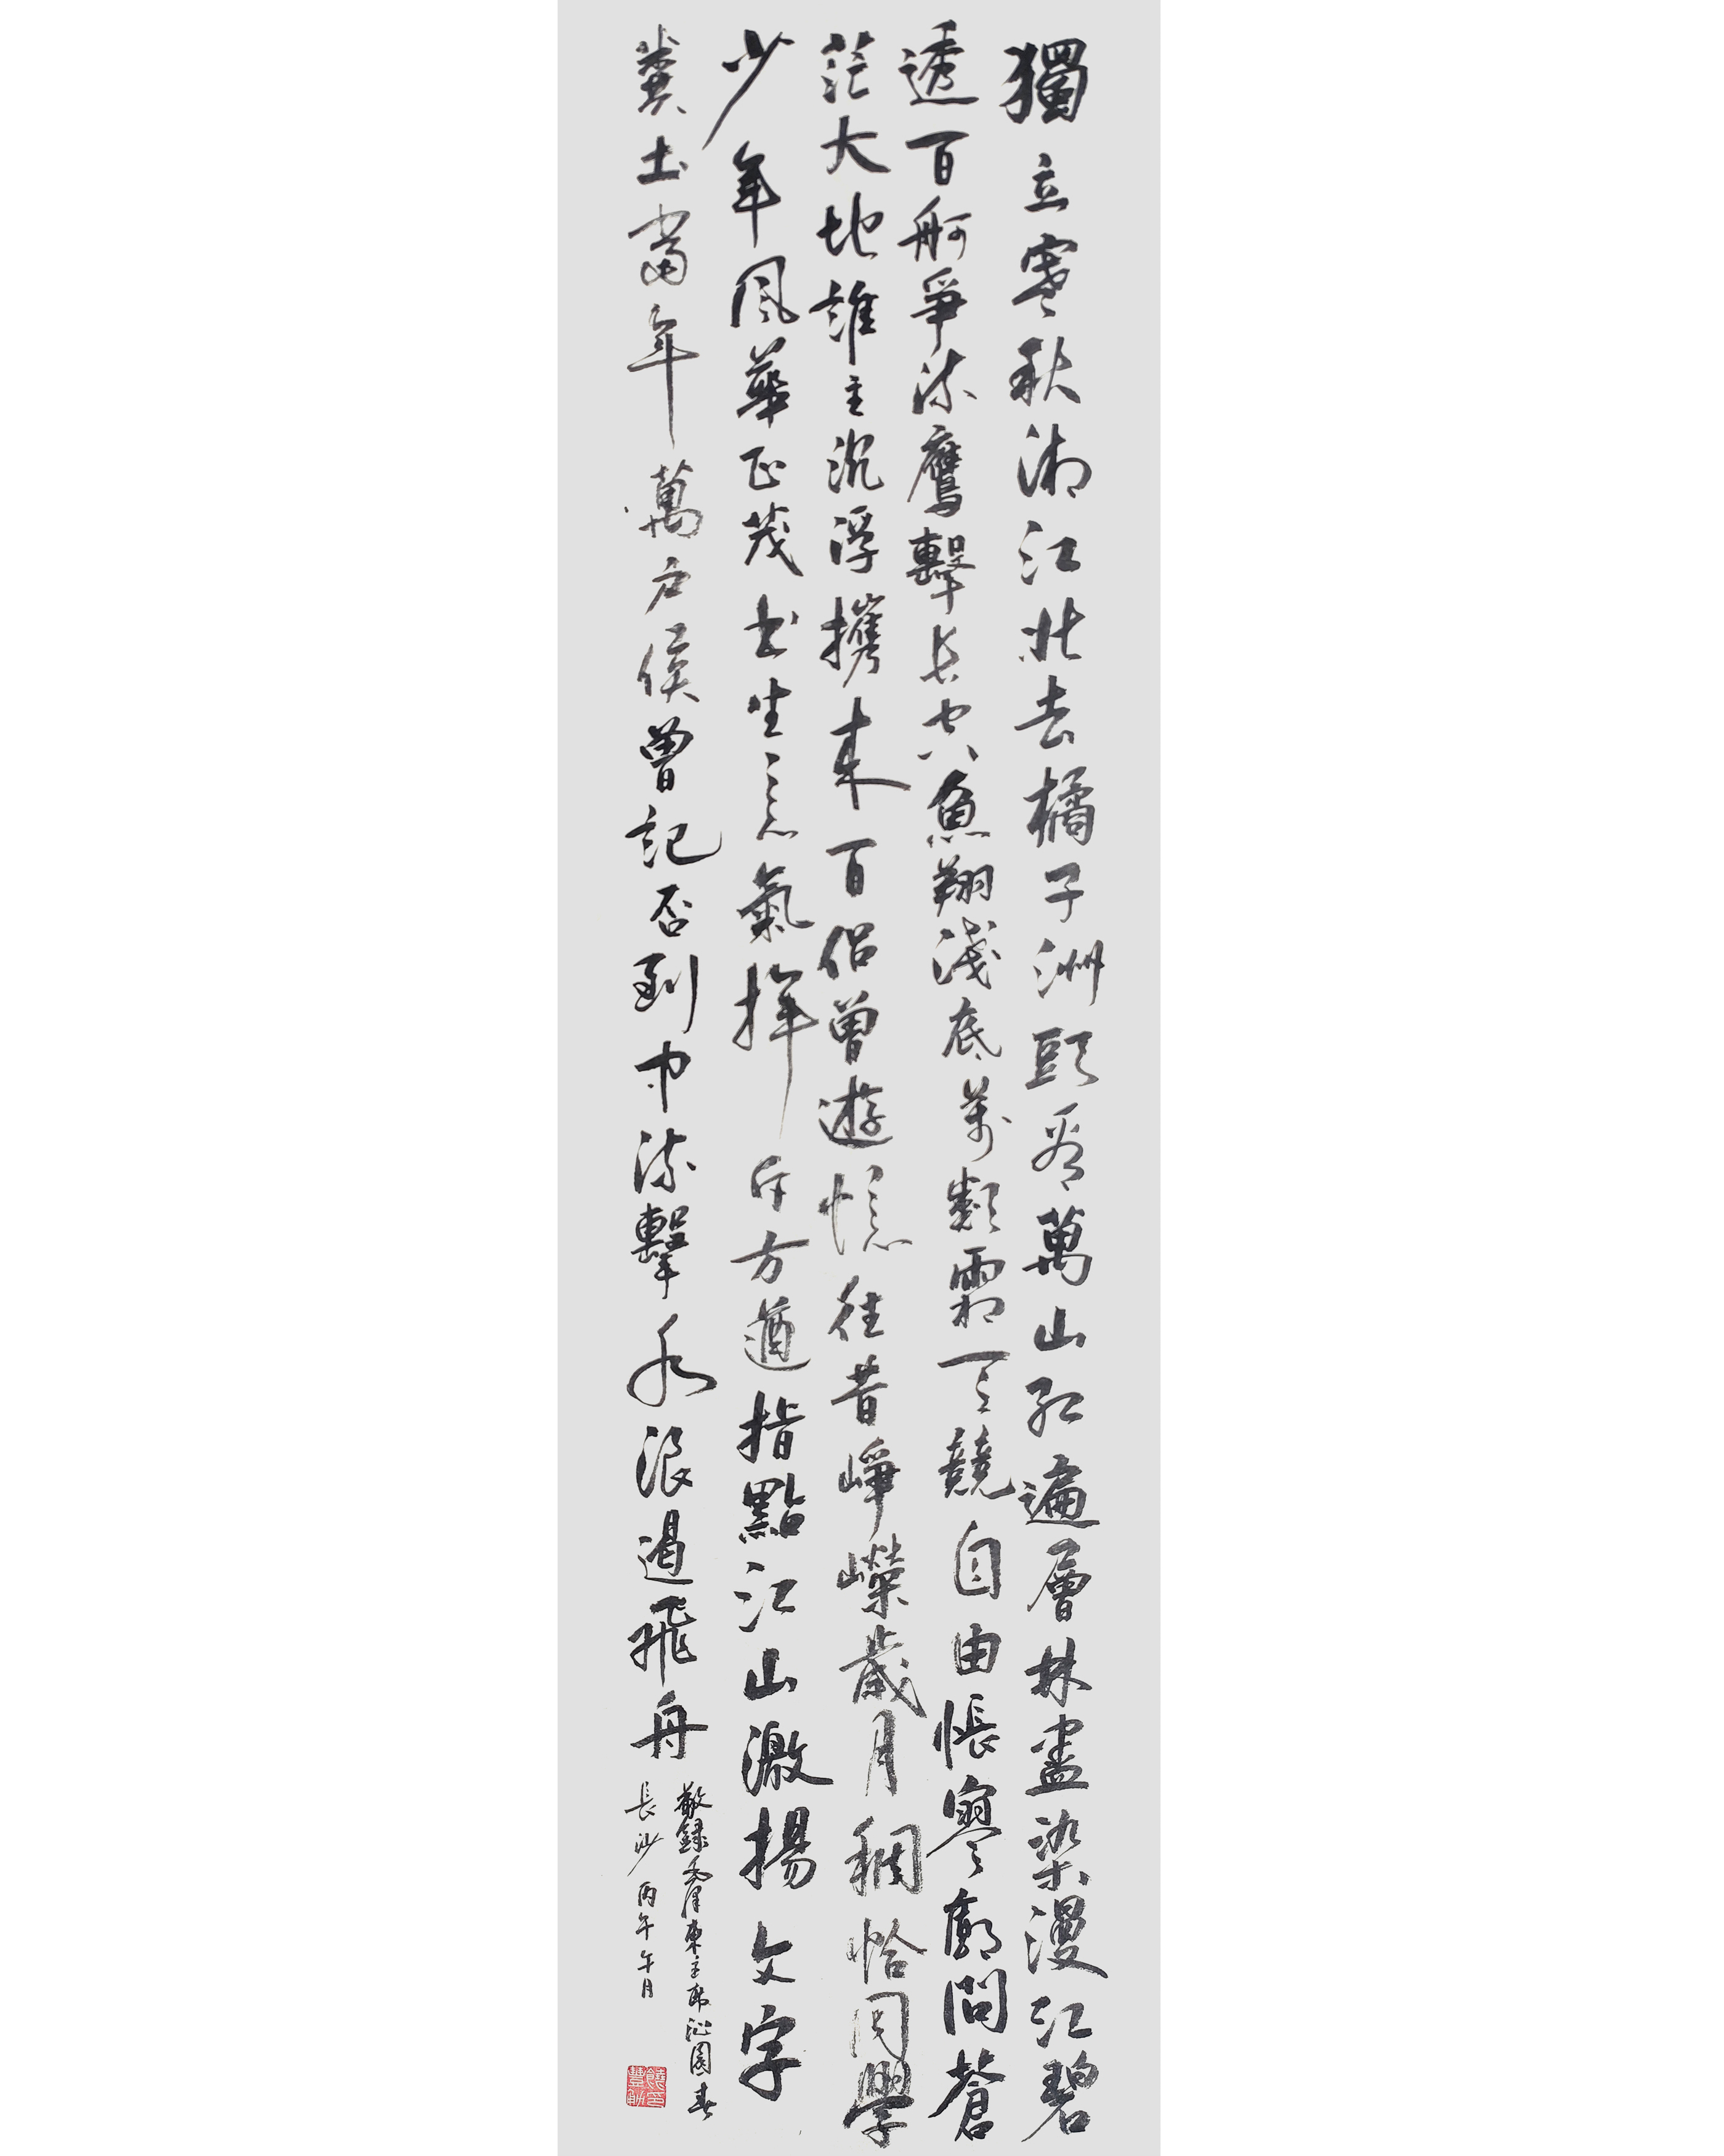 獨立寒秋湘江北去橘子洲頭看萬山紅遍層林盡染漫江碧
透百舸爭流鷹擊長空魚翔淺底萬類霜天競自由悵寥廓問蒼
茫大地誰主沉浮攜來百侶曾遊憶往昔崢嶸歲月稠恰同學
少年風華正茂書生意氣揮斥方遒指點江山激揚文字
糞土當年萬戶侯曾記否到中流擊水浪遏飛舟
敬録毛澤東主席沁園春
長沙 丙午午月